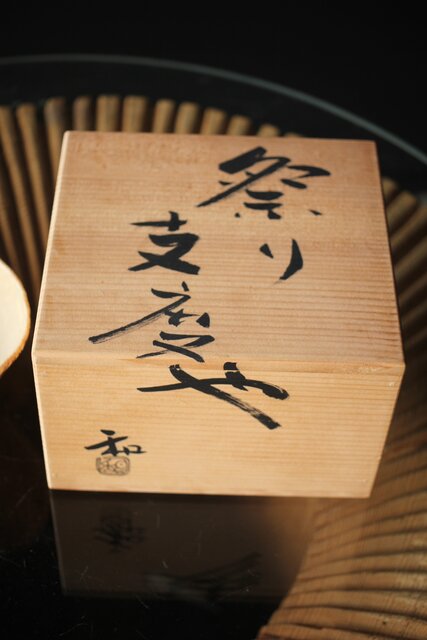 祭り
支度や
和